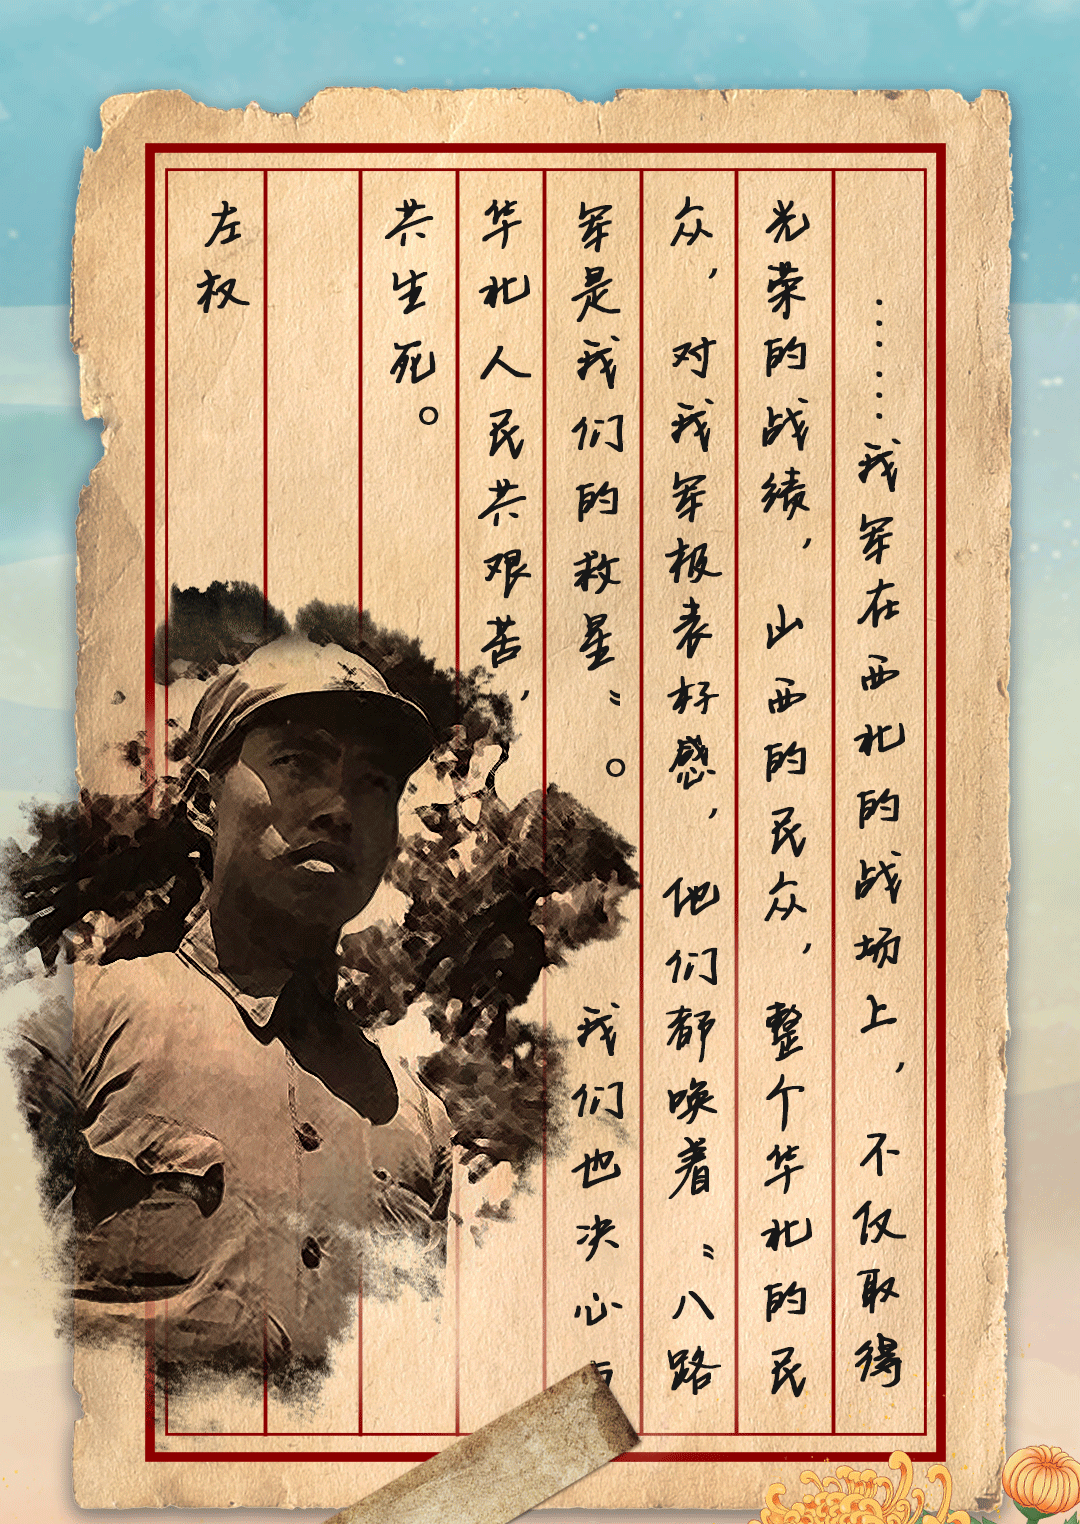 ……我军在西北的战场上，不仅取得
光荣的战绩，山西的民众，整个华北的民
众，对我军极表好感，他们都唤着“八路
军是我们的救星”。我们也决心
华北人民共艰苦，
共生死。
左权